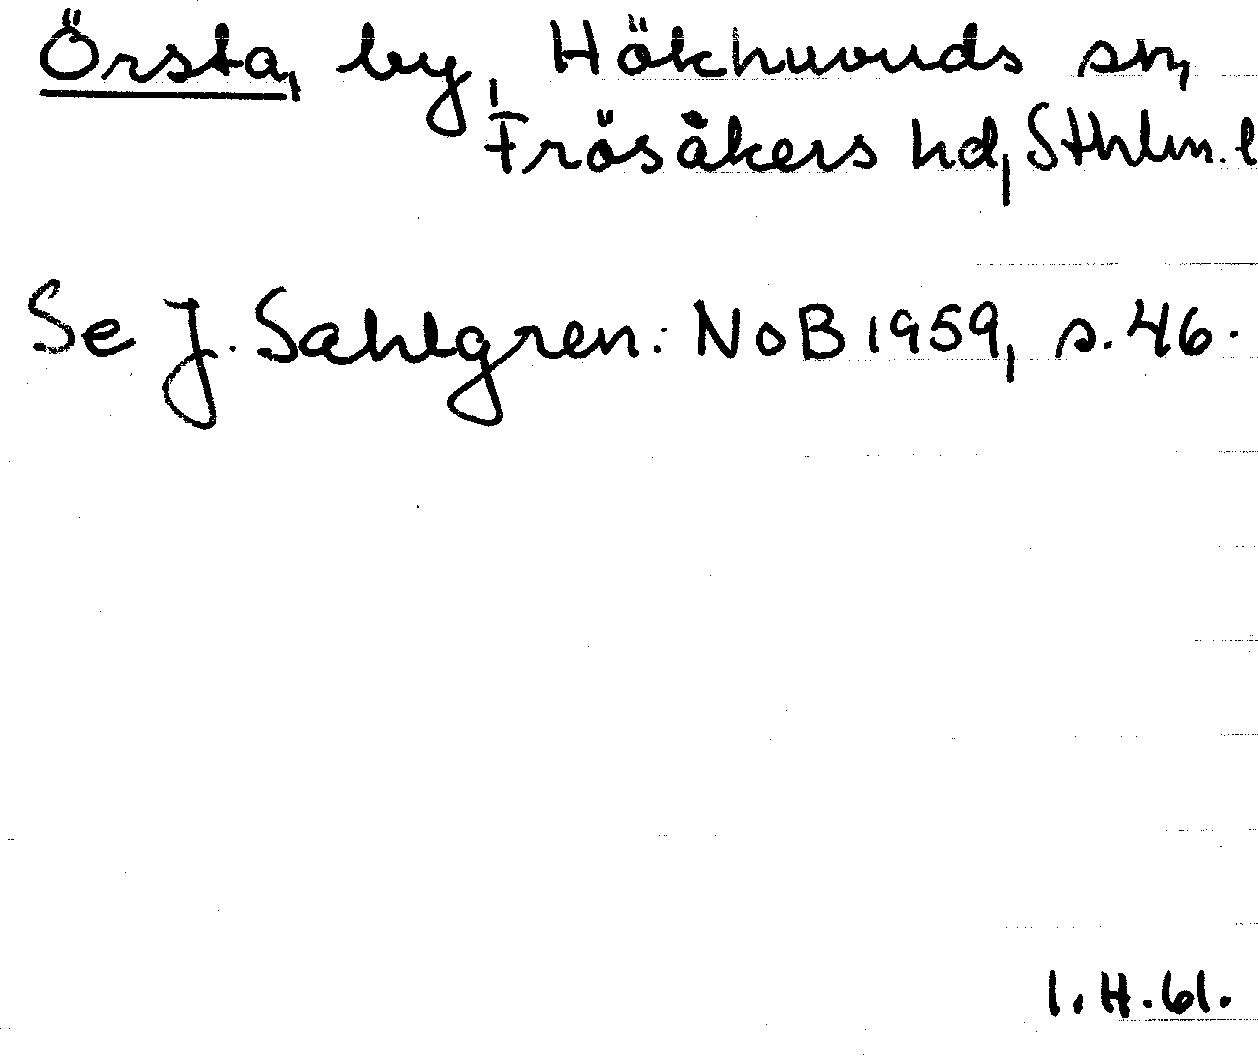 Örsta, by, Hökhuvuds sn,
Frösåkers hd, Sthlm. l
Se J. Sahlgren: NoB 1959, s. 46.
I. H. 61.